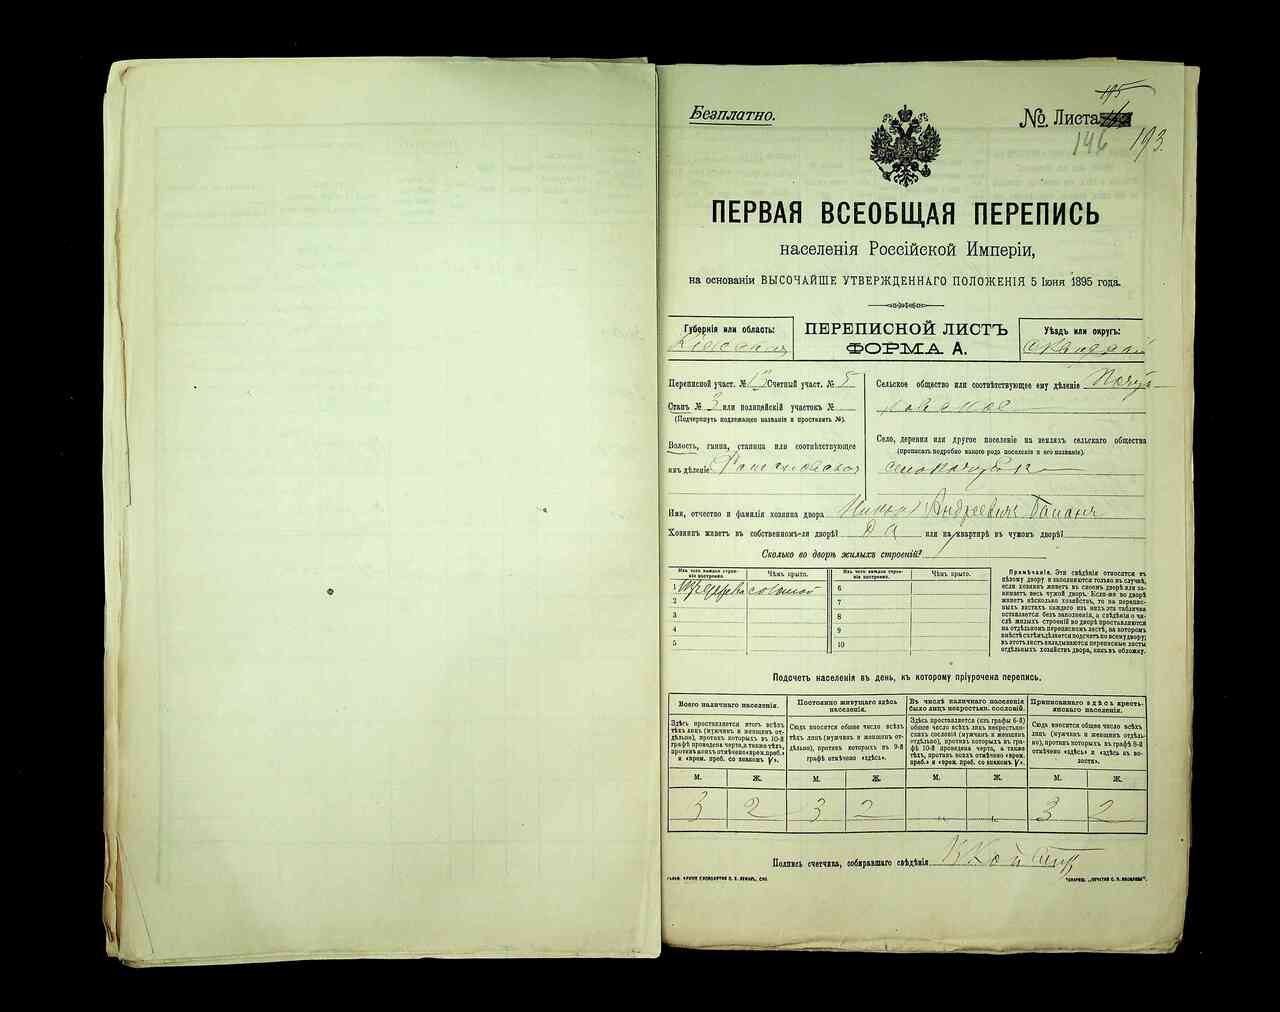 Безплатно.
№ Листа
195
146 193.
ПЕРВАЯ ВСЕОБЩАЯ ПЕРЕПИСЬ
населенія Россійской Имперіи,
на основаніи ВЫСОЧАЙШЕ УТВЕРЖДЕННАГО ПОЛОЖЕНІЯ 5 Іюня 1895 года.
Губернія или область:
Кіевская
ПЕРЕПИСНОЙ ЛИСТЪ
ФОРМА А.
Уѣздъ или округъ:
Переписной участ. № 13 Счетный участ. № 5
Станъ № 3 или полицейскій участокъ №
(Подчеркнуть подлежащее названіе и проставить №).
Волость, гмина, станица или соотвѣтствующее
имъ дѣленіе
Сельское общество или соотвѣтствующее ему дѣленіе
Село, деревня или другое поселеніе на земляхъ сельскаго общества
(прописать подробно какого рода поселеніе и его названіе).
село
Имя, отчество и фамилія хозяина двора Андреевичъ
Хозяинъ живетъ въ собственномъ-ли дворѣ? да или на квартирѣ въ чужомъ дворѣ?
Сколько во дворѣ жилыхъ строеній? 1
Изъ чего каждое строеніе построено. Чѣмъ крыто. Изъ чего каждое строеніе построено. Чѣмъ крыто.
1 соломой 6
2 7
3 8
4 9
5 10
Примѣчаніе. Эти свѣдѣнія относятся къ
цѣлому двору и заполняются только въ случаѣ,
если хозяинъ живетъ въ своемъ дворѣ или занимаетъ
весь чужой дворъ. Если-же во дворѣ
живетъ нѣсколько хозяйствъ, то на переписныхъ
листахъ каждаго изъ нихъ эта табличка
оставляется безъ заполненія, а свѣдѣнія о числѣ
жилыхъ строеній во дворѣ проставляются
на отдѣльномъ переписномъ листѣ, на которомъ
вмѣстѣ съ тѣмъ дѣлается подсчетъ по всему двору;
въ этотъ листъ вкладываются переписные листы
отдѣльныхъ хозяйствъ двора, какъ въ обложку.
Подсчетъ населенія въ день, къ которому пріурочена перепись.
Всего наличнаго населенія.
Здѣсь проставляется итогъ всѣхъ
тѣхъ лицъ (мужчинъ и женщинъ отдѣльно),
противъ которыхъ въ 10-й
графѣ проведена черта, а также тѣхъ,
противъ коихъ отмѣчено «врем. преб.»
и «врем. преб. со знакомъ V».
Постоянно живущаго здѣсь
населенія.
Сюда вносится общее число всѣхъ
тѣхъ лицъ (мужчинъ и женщинъ отдѣльно),
противъ которыхъ въ 9-й
графѣ отмѣчено «здѣсь».
Въ числѣ наличнаго населенія
было лицъ некрестьян. сословій.
Здѣсь проставляется (изъ графы 6-й)
общее число всѣхъ лицъ некрестьянскихъ
сословій (мужчинъ и женщинъ
отдѣльно), противъ которыхъ въ графѣ
10-й проведена черта, а также
тѣхъ, противъ коихъ отмѣчено «врем.
преб.» и «врем. преб. со знакомъ V».
Приписаннаго здѣсь крестьянскаго
населенія.
Сюда вносится общее число всѣхъ
лицъ (мужчинъ и женщинъ отдѣльно),
противъ которыхъ въ графѣ 8-й
отмѣчено «здѣсь» и «здѣсь въ волости».
М. Ж. М. Ж. М. Ж. М. Ж.
3 2 3 2 „ „ 3 2
Подпись счетчика, собиравшаго свѣдѣнія